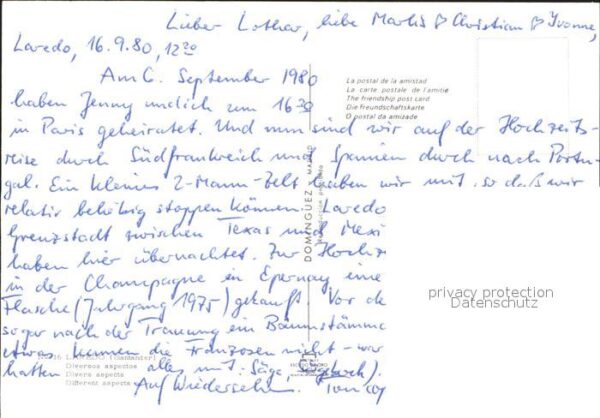 Lieber Lothar, liebe Marlis & Christian & Yvonne,
Laredo, 16.9.80, 12²⁰
Am 6. September 1980
haben Jenny und ich um 16³⁰
in Paris geheiratet. Und nun sind wir auf der Hochzeits-
reise durch Südfrankreich und Spanien durch nach Portu-
gal. Ein kleines 2-Mann-Zelt haben wir mit, so daß wir
relativ beliebig stoppen können. Laredo
Grenzstadt zwischen Texas und Mexi
haben hier übernachtet. Zur Hochz
in der Champagne in Epernay eine
Flasche (Jahrgang 1975) gekauft. Vor de
sogar nach der Trauung ein Baumstamm
etwas kennen die Franzosen nicht - war
hatten alles mit: Säge,
Auf Wiedersehn.
La postal de la amistad
La carte postale de l'amitie
The friendship post card
Die freundschaftskarte
O postal da amizade
DOMINGUEZ - MADRID
privacy protection
Datenschutz
LAREDO (Santander)
Diversos aspectos
Divers aspects
Different aspects